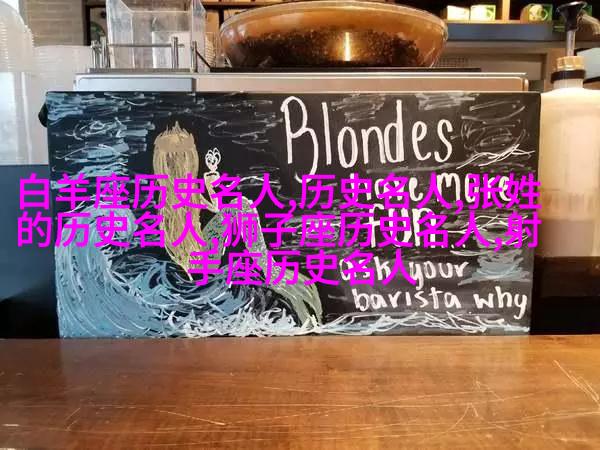 Blondes
白羊座历史名人,历史名人,张姓
的历史名人,狮子座历史名人,射
手座历史名人
your
barista why